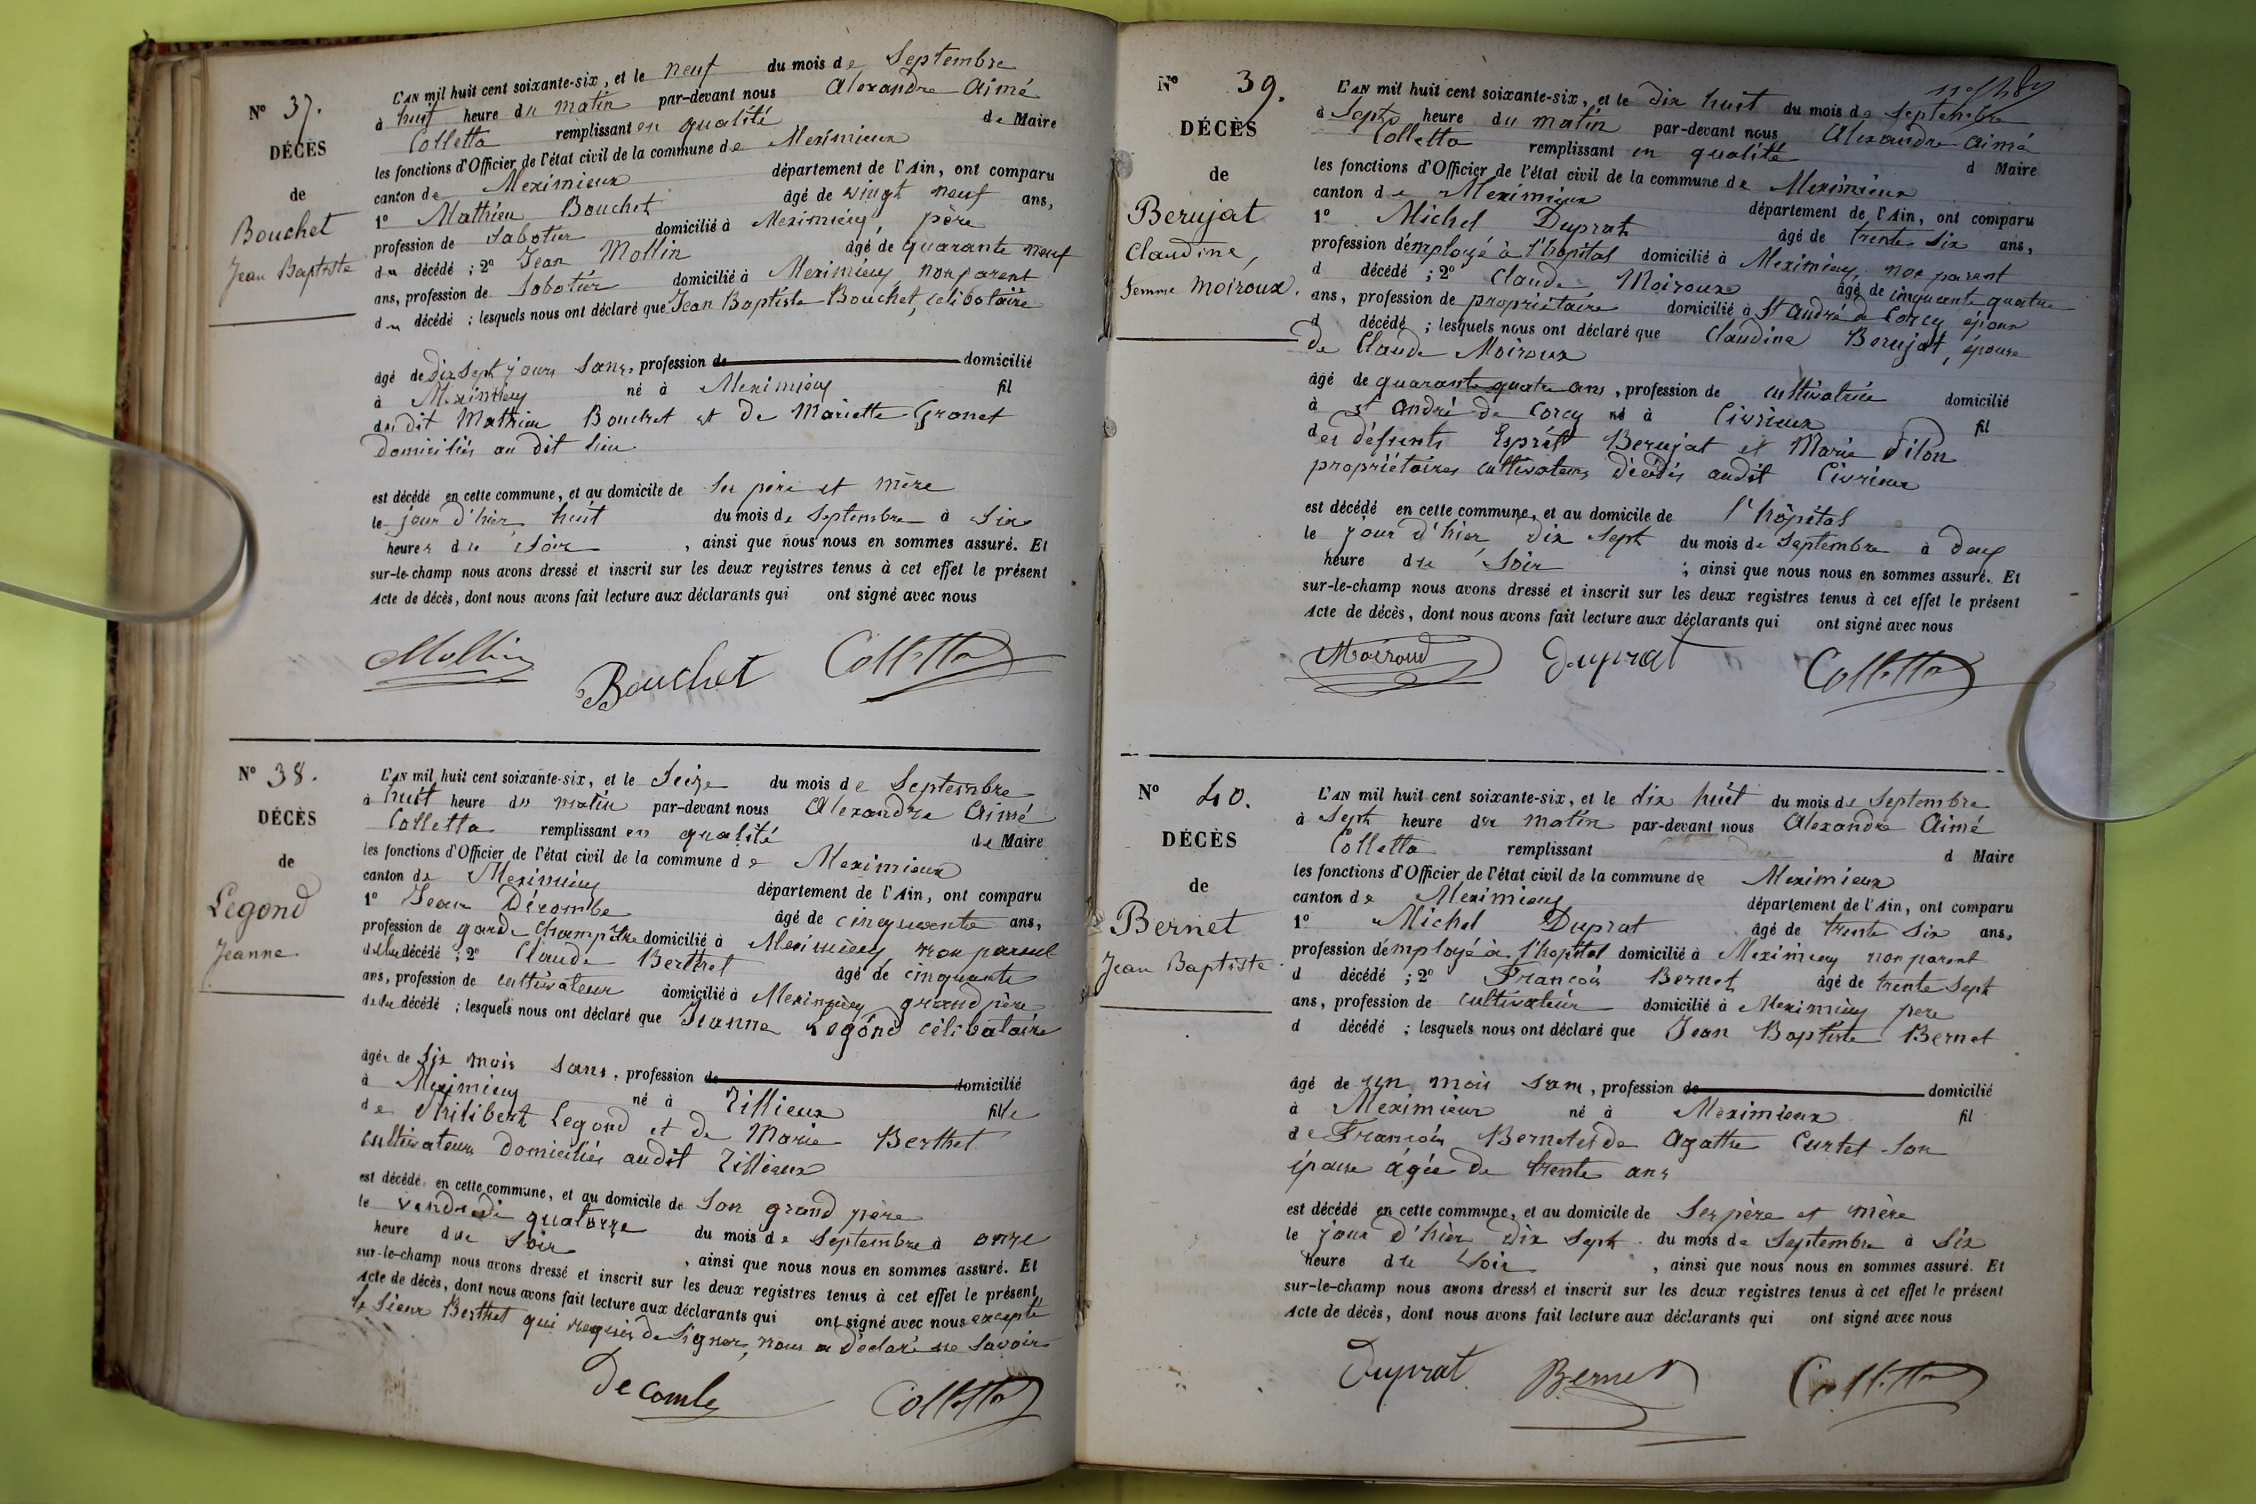 N° 37.
DÉCÈS
de
Bouchet
Jean Baptiste
L'AN mil huit cent soixante-six, et le neuf du mois de Septembre
à huit heure du matin par-devant nous Alexandre Aimé
Colletta remplissant en qualité de Maire
les fonctions d'Officier de l'état civil de la commune de Meximieux
canton de Meximieux département de l'Ain, ont comparu
1° Mathieu Bouchet âgé de vingt neuf ans,
profession de Sabotier domicilié à Meximieux père
du décédé ; 2° Jean Mollin âgé de quarante neuf
ans, profession de Sabotier domicilié à Meximieux non parent
du décédé ; lesquels nous ont déclaré que Jean Baptiste Bouchet, célibataire
âgé de dix sept jours sans, profession de domicilié
à Meximieux né à Meximieux fil
du dit Mathieu Bouchet et de Mariette Gronet
domiciliés au dit lieu
est décédé en cette commune, et au domicile de ses père et mère
le jour d'hier huit du mois de Septembre à Six
heures du Soir , ainsi que nous nous en sommes assuré. Et
sur-le-champ nous avons dressé et inscrit sur les deux registres tenus à cet effet le présent
Acte de décès, dont nous avons fait lecture aux déclarants qui ont signé avec nous
Mollin Bouchet Colletta
N° 38.
DÉCÈS
de
Legond
Jeanne
L'AN mil huit cent soixante-six, et le Seize du mois de Septembre
à huit heure du matin par-devant nous Alexandre Aimé
Colletta remplissant en qualité de Maire
les fonctions d'Officier de l'état civil de la commune de Meximieux
canton de Meximieux département de l'Ain, ont comparu
1° Jean Décombe âgé de cinquante ans,
profession de garde champêtre domicilié à Meximieux non parent
de la décédé ; 2° Claude Berthet âgé de cinquante
ans, profession de cultivateur domicilié à Meximieux grand père
de la décédé ; lesquels nous ont déclaré que Jeanne Legond célibataire
âgée de Six mois sans, profession de domicilié
à Meximieux né à Rillieux fille
de Philibert Legond et de Marie Berthet
cultivateurs domiciliés audit Rillieux
est décédé en cette commune, et au domicile de Son grand père
le vendredi quatorze du mois de Septembre à onze
heure du Soir , ainsi que nous nous en sommes assuré. Et
sur-le-champ nous avons dressé et inscrit sur les deux registres tenus à cet effet le présent
Acte de décès, dont nous avons fait lecture aux déclarants qui ont signé avec nous excepté
le Sieur Berthet qui requis de signer, nous a déclaré ne savoir
Decombe Colletta
N° 39.
DÉCÈS
de
Berujat
Claudine,
femme Moiroux.
L'AN mil huit cent soixante-six, et le dix huit du mois de Septembre
à Sept heure du matin par-devant nous Alexandre Aimé
Colletta remplissant en qualité d Maire
les fonctions d'Officier de l'état civil de la commune de Meximieux
canton de Meximieux département de l'Ain, ont comparu
1° Michel Duprat âgé de trente Six ans,
profession d'employé à l'hôpital domicilié à Meximieux, non parent
d décédé ; 2° Claude Moiroux âgé de cinquante quatre
ans, profession de propriétaire domicilié à St André de Corcy époux
d décédé ; lesquels nous ont déclaré que Claudine Berujat, épouse
de Claude Moiroux
âgé de quarante quatre ans, profession de cultivatrice domicilié
à St André de Corcy né à Civrieux fil
des défunts Esprit Berujat et Marie Filon
propriétaires cultivateurs décédés audit Civrieux
est décédé en cette commune, et au domicile de l'hôpital
le jour d'hier dix sept du mois de Septembre à deux
heure du Soir ; ainsi que nous nous en sommes assuré. Et
sur-le-champ nous avons dressé et inscrit sur les deux registres tenus à cet effet le présent
Acte de décès, dont nous avons fait lecture aux déclarants qui ont signé avec nous
Moiroud Duprat Colletta
N° 40.
DÉCÈS
de
Bernet
Jean Baptiste
L'AN mil huit cent soixante-six, et le dix huit du mois de Septembre
à Sept heure du matin par-devant nous Alexandre Aimé
Colletta remplissant d Maire
les fonctions d'Officier de l'état civil de la commune de Meximieux
canton de Meximieux département de l'Ain, ont comparu
1° Michel Duprat âgé de trente Six ans,
profession d'employé à l'hopital domicilié à Meximieux non parent
d décédé ; 2° François Bernet âgé de trente Sept
ans, profession de cultivateur domicilié à Meximieux père
d décédé ; lesquels nous ont déclaré que Jean Baptiste Bernet
âgé de un mois sans, profession de domicilié
à Meximieux né à Meximieux fil
de François Bernet et de Agathe Curtet son
épouse âgée de trente ans
est décédé en cette commune, et au domicile de Ses père et mère
le jour d'hier dix Sept du mois de Septembre à Six
heure du Soir , ainsi que nous nous en sommes assuré. Et
sur-le-champ nous avons dressé et inscrit sur les deux registres tenus à cet effet le présent
Acte de décès, dont nous avons fait lecture aux déclarants qui ont signé avec nous
Duprat Bernet Colletta